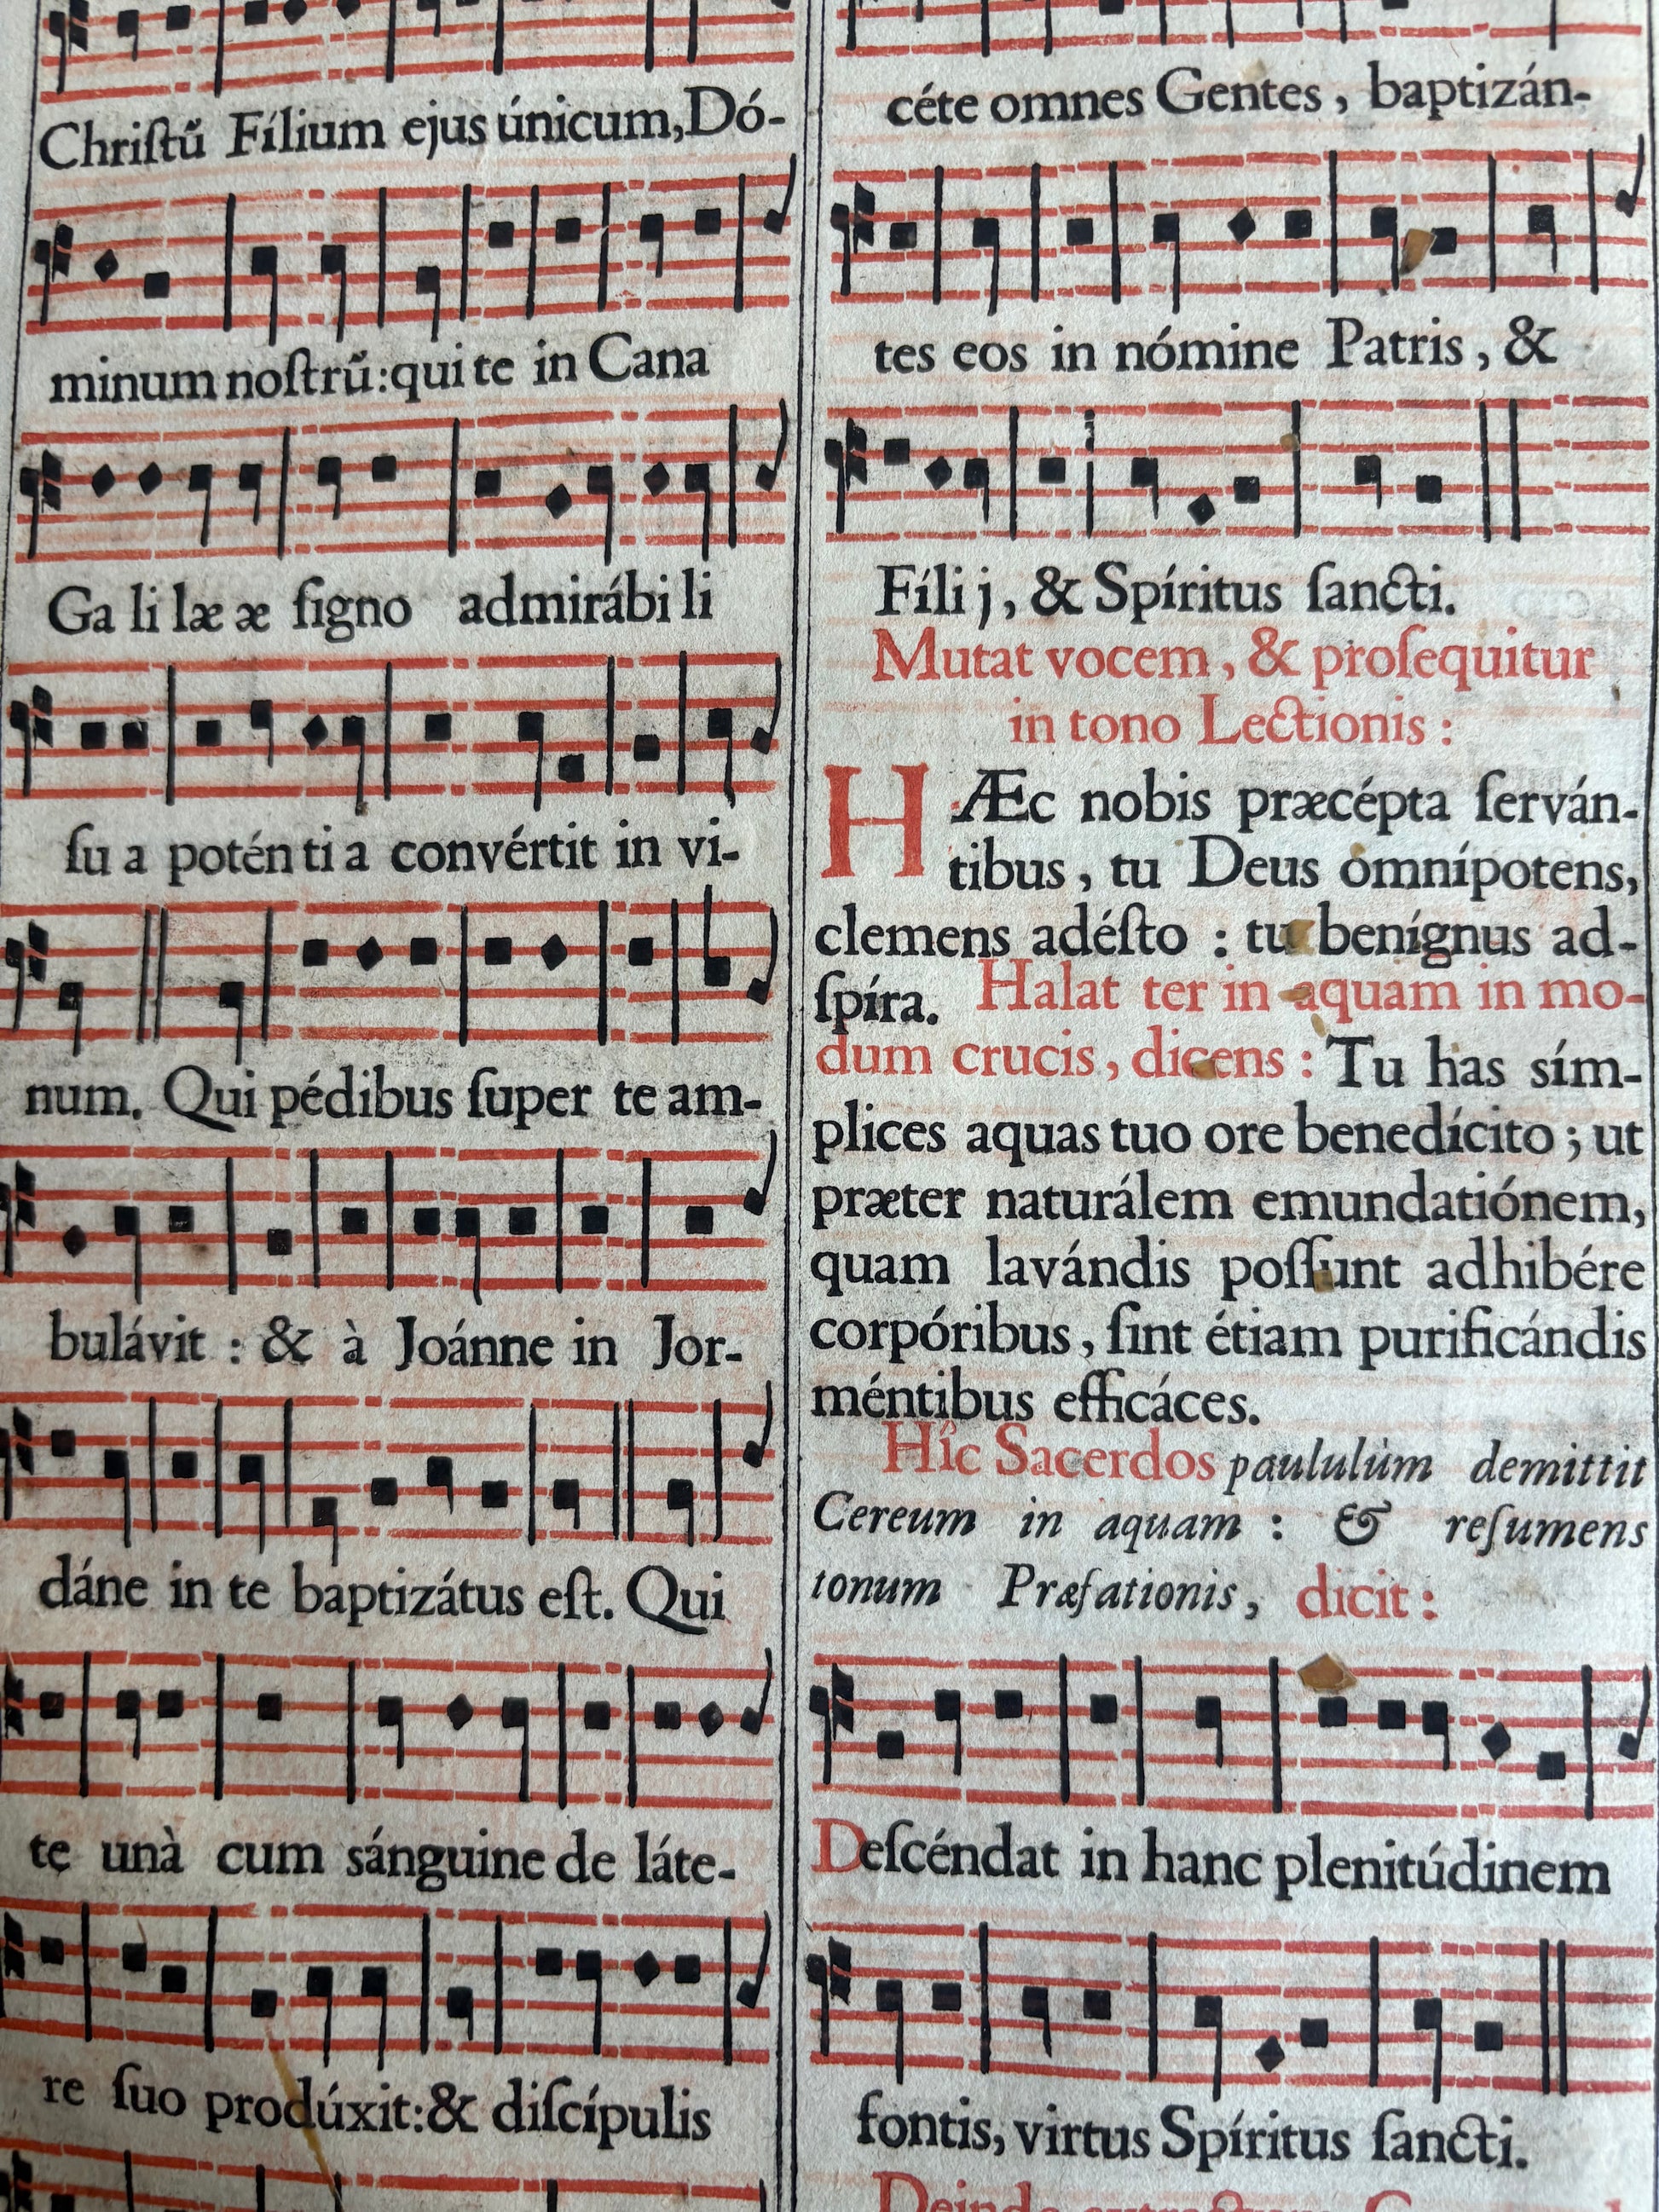 Chriſtū Fílium ejus únicum, Dó-
minum noſtrū: qui te in Cana
Ga li læ æ ſigno admirábi li
ſu a poténti a convértit in vi-
num. Qui pédibus ſuper te am-
bulávit : & à Joánne in Jor-
dáne in te baptizátus eſt. Qui
te unà cum sánguine de láte-
re ſuo prodúxit: & diſcípulis
céte omnes Gentes, baptizán-
tes eos in nómine Patris, &
Fíli j, & Spíritus ſancti.
Mutat vocem, & proſequitur
in tono Lectionis :
HÆc nobis præcépta ſerván-
tibus, tu Deus omnípotens,
clemens adéſto : tu benígnus ad-
ſpíra. Halat ter in aquam in mo-
dum crucis, dicens : Tu has sím-
plices aquas tuo ore benedícito ; ut
præter naturálem emundatiónem,
quam lavándis poſſunt adhibére
corpóribus, ſint étiam purificándis
méntibus efficáces.
Hîc Sacerdos paululùm demittit
Cereum in aquam : & reſumens
tonum Præfationis, dicit :
Deſcéndat in hanc plenitúdinem
fontis, virtus Spíritus ſancti.
Deinde